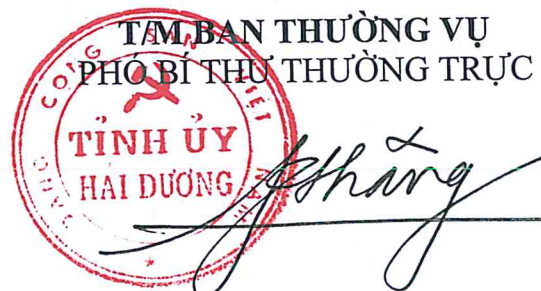 T/M BAN THƯỜNG VỤ
PHÓ BÍ THƯ THƯỜNG TRỰC
ĐẢNG CỘNG SẢN VIỆT NAM
TỈNH ỦY
HẢI DƯƠNG
Thăng